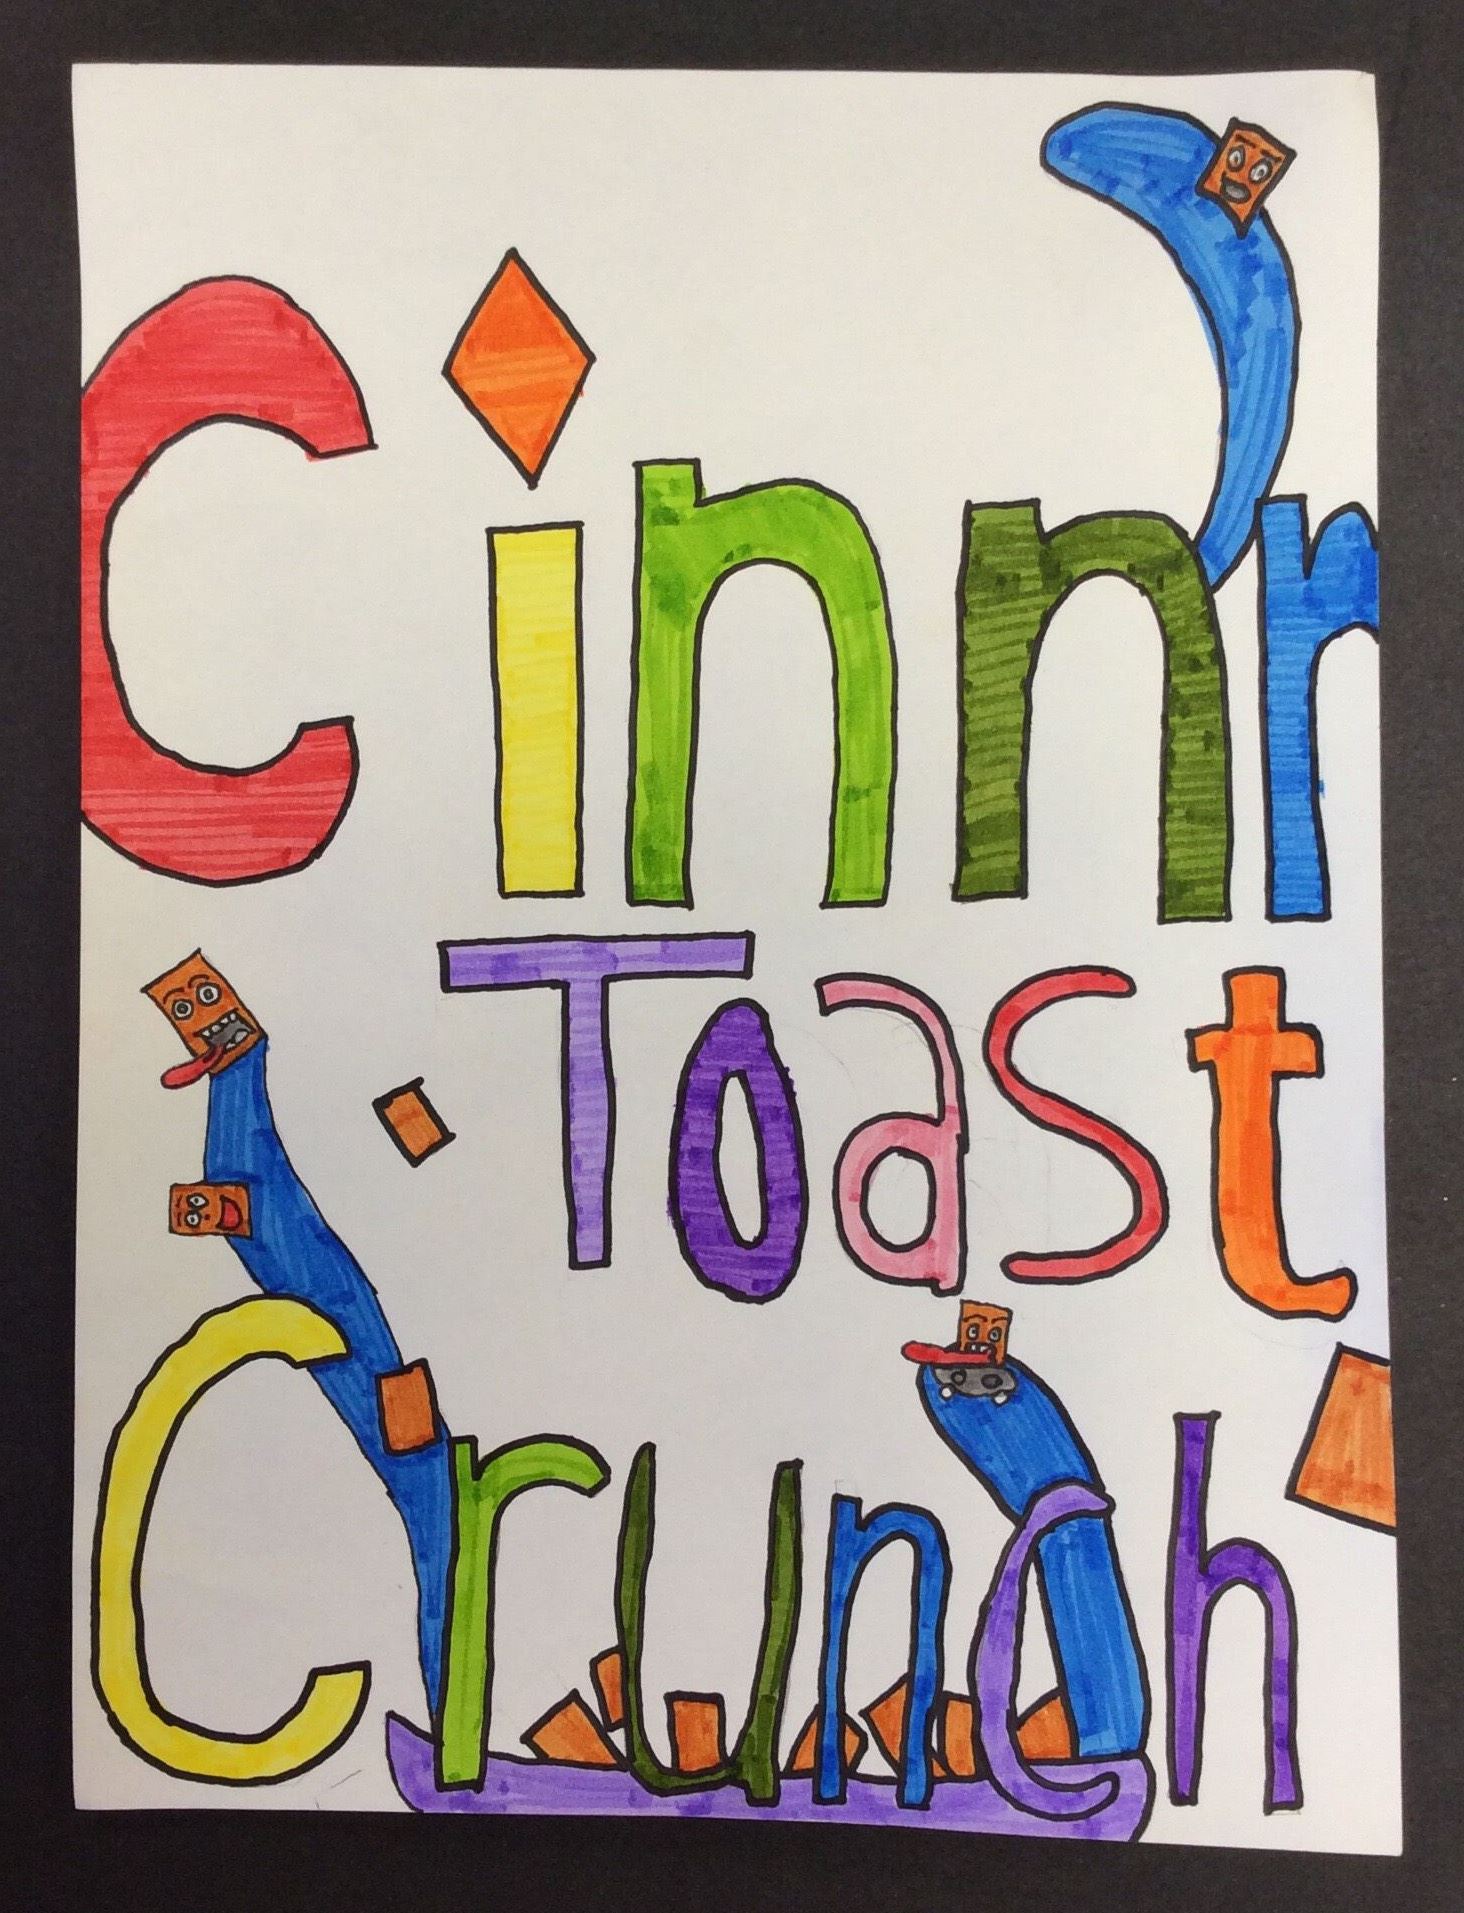 Cinnn
Toast
Crunch